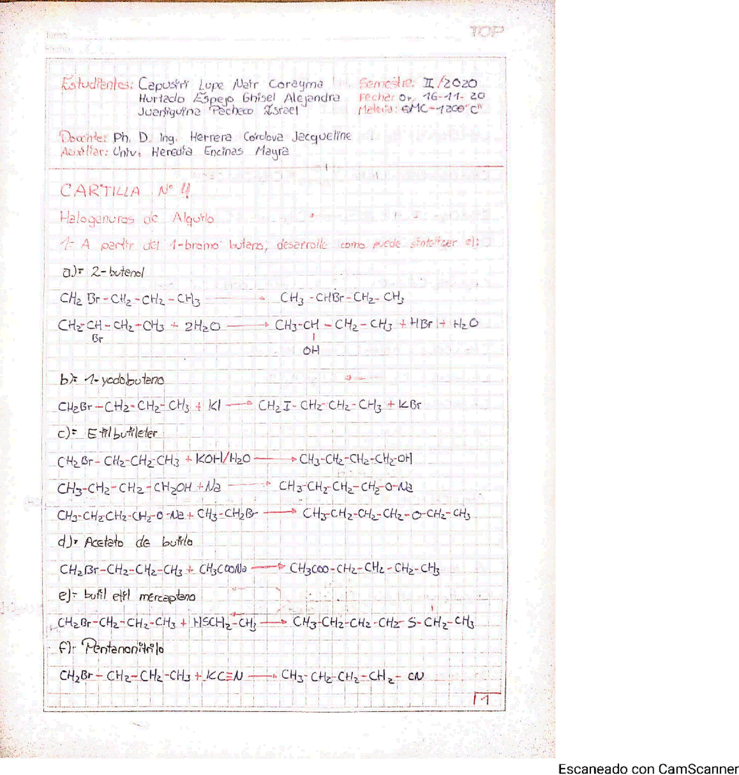 TOP
Estudiantes: Capusiri Lupe Nair Corayma Semestre: II/2020
Hurtado Espejo Ghisel Alejandra Fecha: Or, 16-11-20
Juaniquina Pacheco Israel Materia: QMC-1200 "C"
Docente: Ph. D. Ing. Herrera Cordova Jacqueline
Auxiliar: Univ: Heredia Encinas Mayra
CARTILLA Nº 4
Halogenuros de Alquilo
1- A partir del 1-bromo butano, desarrolle como puede sintetizar el:
a)= 2-butanol
CH2 Br-CH2-CH2-CH3 → CH3-CHBr-CH2-CH3
CH2-CH-CH2-CH3 + 2H2O → CH3-CH-CH2-CH3 + HBr + H2O
Br
OH
b)= 1-yodobutano
CH2Br-CH2-CH2-CH3 + KI → CH2I-CH2-CH2-CH3 + KBr
c)= Etilbutileter
CH2Br-CH2-CH2-CH3 + KOH/H2O → CH3-CH2-CH2-CH2-OH
CH3-CH2-CH2-CH2OH + Na → CH3-CH2-CH2-CH2-O-Na
CH3-CH2CH2-CH2-O-Na + CH3-CH2Br → CH3-CH2-CH2-CH2-O-CH2-CH3
d)= Acetato de butilo
CH2Br-CH2-CH2-CH3 + CH3COONa → CH3COO-CH2-CH2-CH2-CH3
e)= butil etil mercaptano
CH2Br-CH2-CH2-CH3 + HSCH2-CH3 → CH3-CH2-CH2-CH2-S-CH2-CH3
f)- Pentanonitrilo
CH2Br-CH2-CH2-CH3 + KC≡N → CH3-CH2-CH2-CH2-CN
1
Escaneado con CamScanner